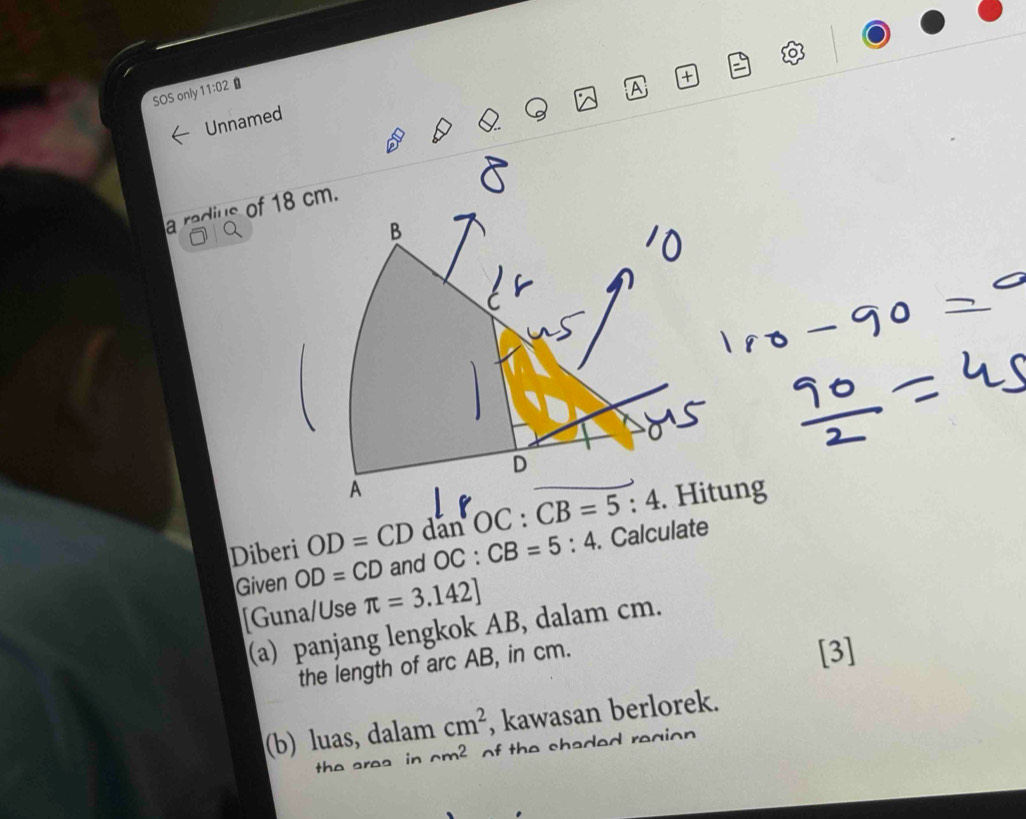 SOS only 11:02
Unnamed
A
a radius of 18 cm.
8
B
10
18
45
180 - 90 =
90/2 = 45
45
D
A
18
Diberi OD = CD dan OC : CB = 5 : 4. Hitung
Given OD = CD and OC : CB = 5 : 4. Calculate
[Guna/Use π = 3.142]
(a) panjang lengkok AB, dalam cm.
the length of arc AB, in cm.
[3]
(b) luas, dalam cm², kawasan berlorek.
the area in cm² of the shaded region